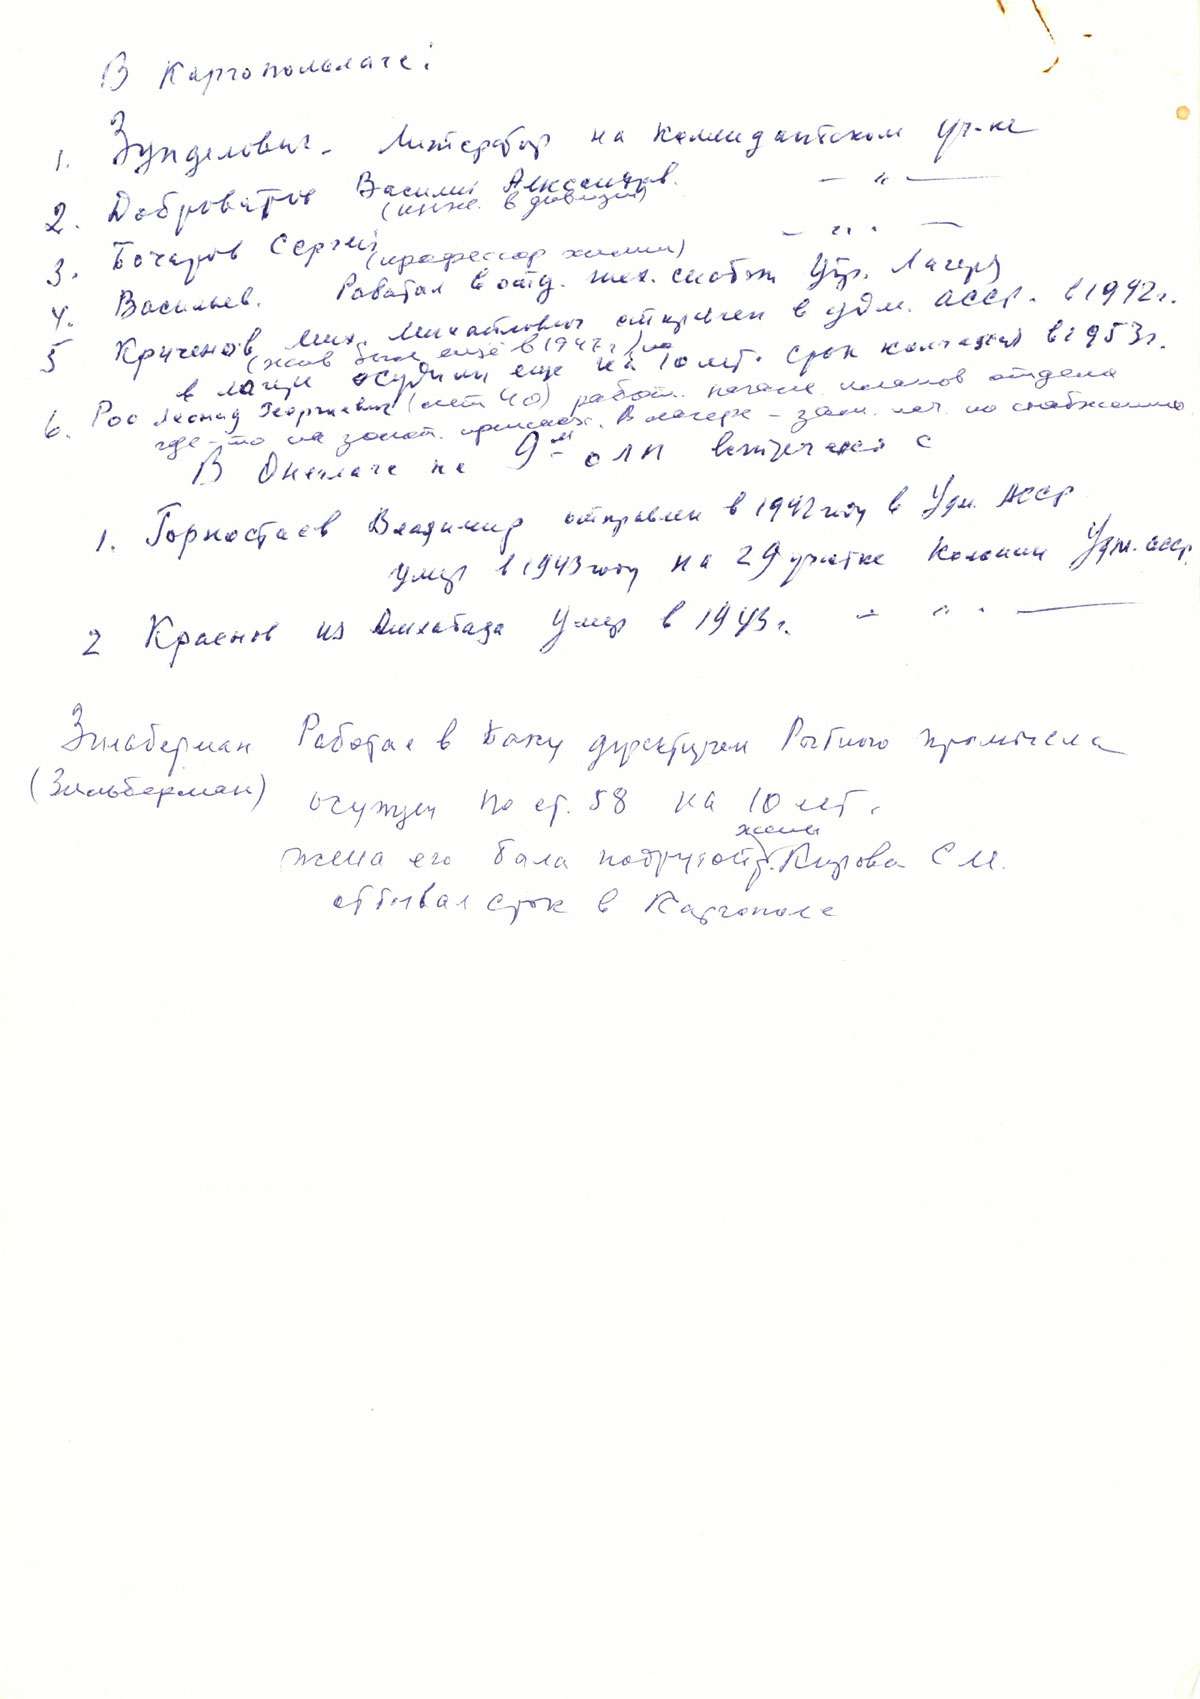 В Каргопольлаге:
1. Зунделович. Литератор на комендантском уч-ке
2. Доброватов Василий Александров. — " —
(инж. в дивизии)
3. Бочаров Сергей — " —
(профессор химии)
4. Васильев. Работал в отд. тех. снабж Упр. Лагеря
5 Криченов Мих. Михайлович отправлен в Удм. АССР. в 1942 г.
(жив был ещё в 1947 г) но
в лагере осудили еще на 10 лет. срок кончался в 1953 г.
6. Рос Леонид Георгиевич (лет 40) работ. начальн. планов отдела
где-то на золот. приисках. В лагере – зам. нач. по снабжению.
В Онеглаге на 9-м олп встречался с
1. Горностаев Владимир отправлен в 1942 году в Удм. АССР
умер в 1943 году на 29 участке Колонии Удм. АССР.
2 Краснов из Ашхабада Умер в 1943 г. — " —
Зильберман Работал в Баку директором Рыбного промысла
(Зильберман) осужден по ст. 58 на 10 лет.
жены
жена его была подругой Кирова С М.
отбывал срок в Каргополе